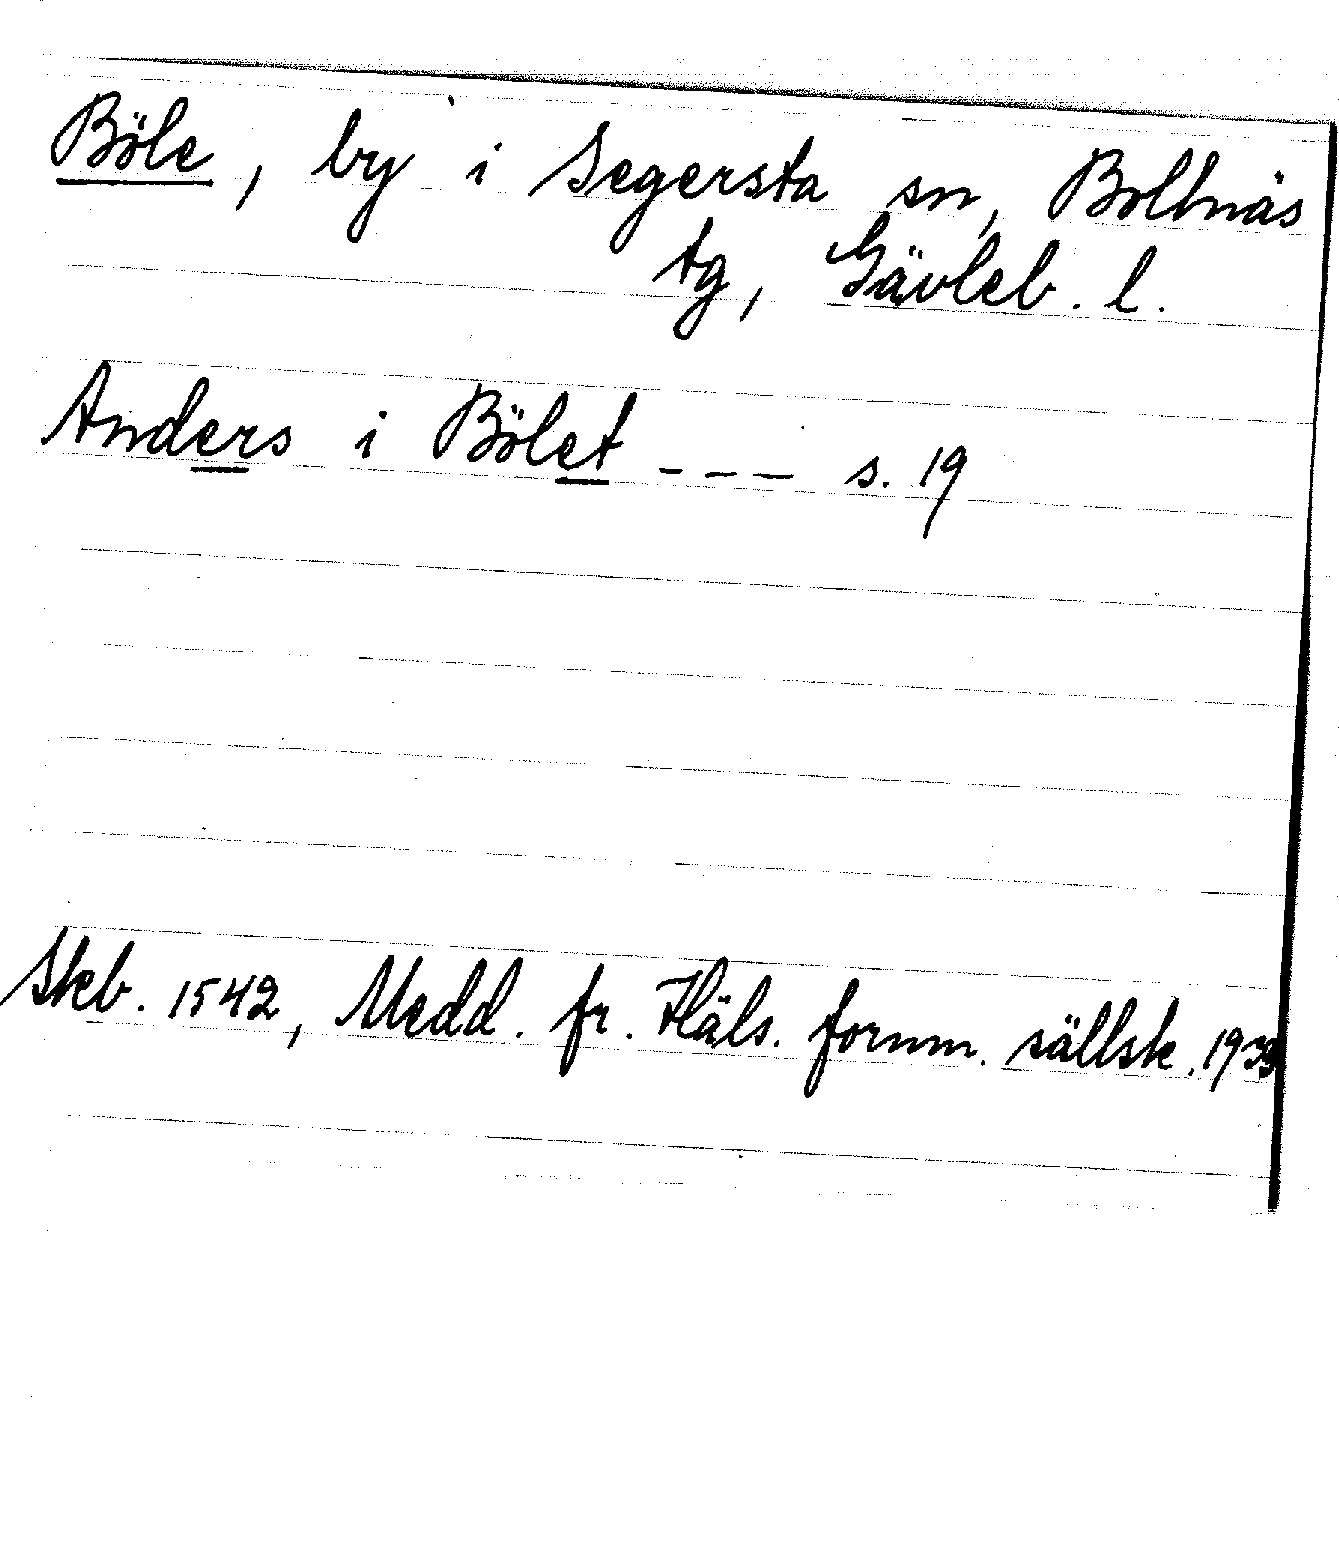 Böle, by i Segersta sn, Bollnäs
tg, Gävleb. l.
Anders i Bölet --- s. 19
Skb. 1542, Medd. fr. Häls. fornm. sällsk. 1939